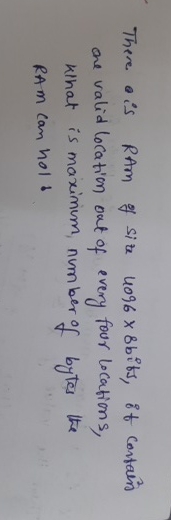 There is RAM of size 4096 x 8bits, it contains
one valid location out of every four locations,
What is maximum number of bytes the
RAM can hold